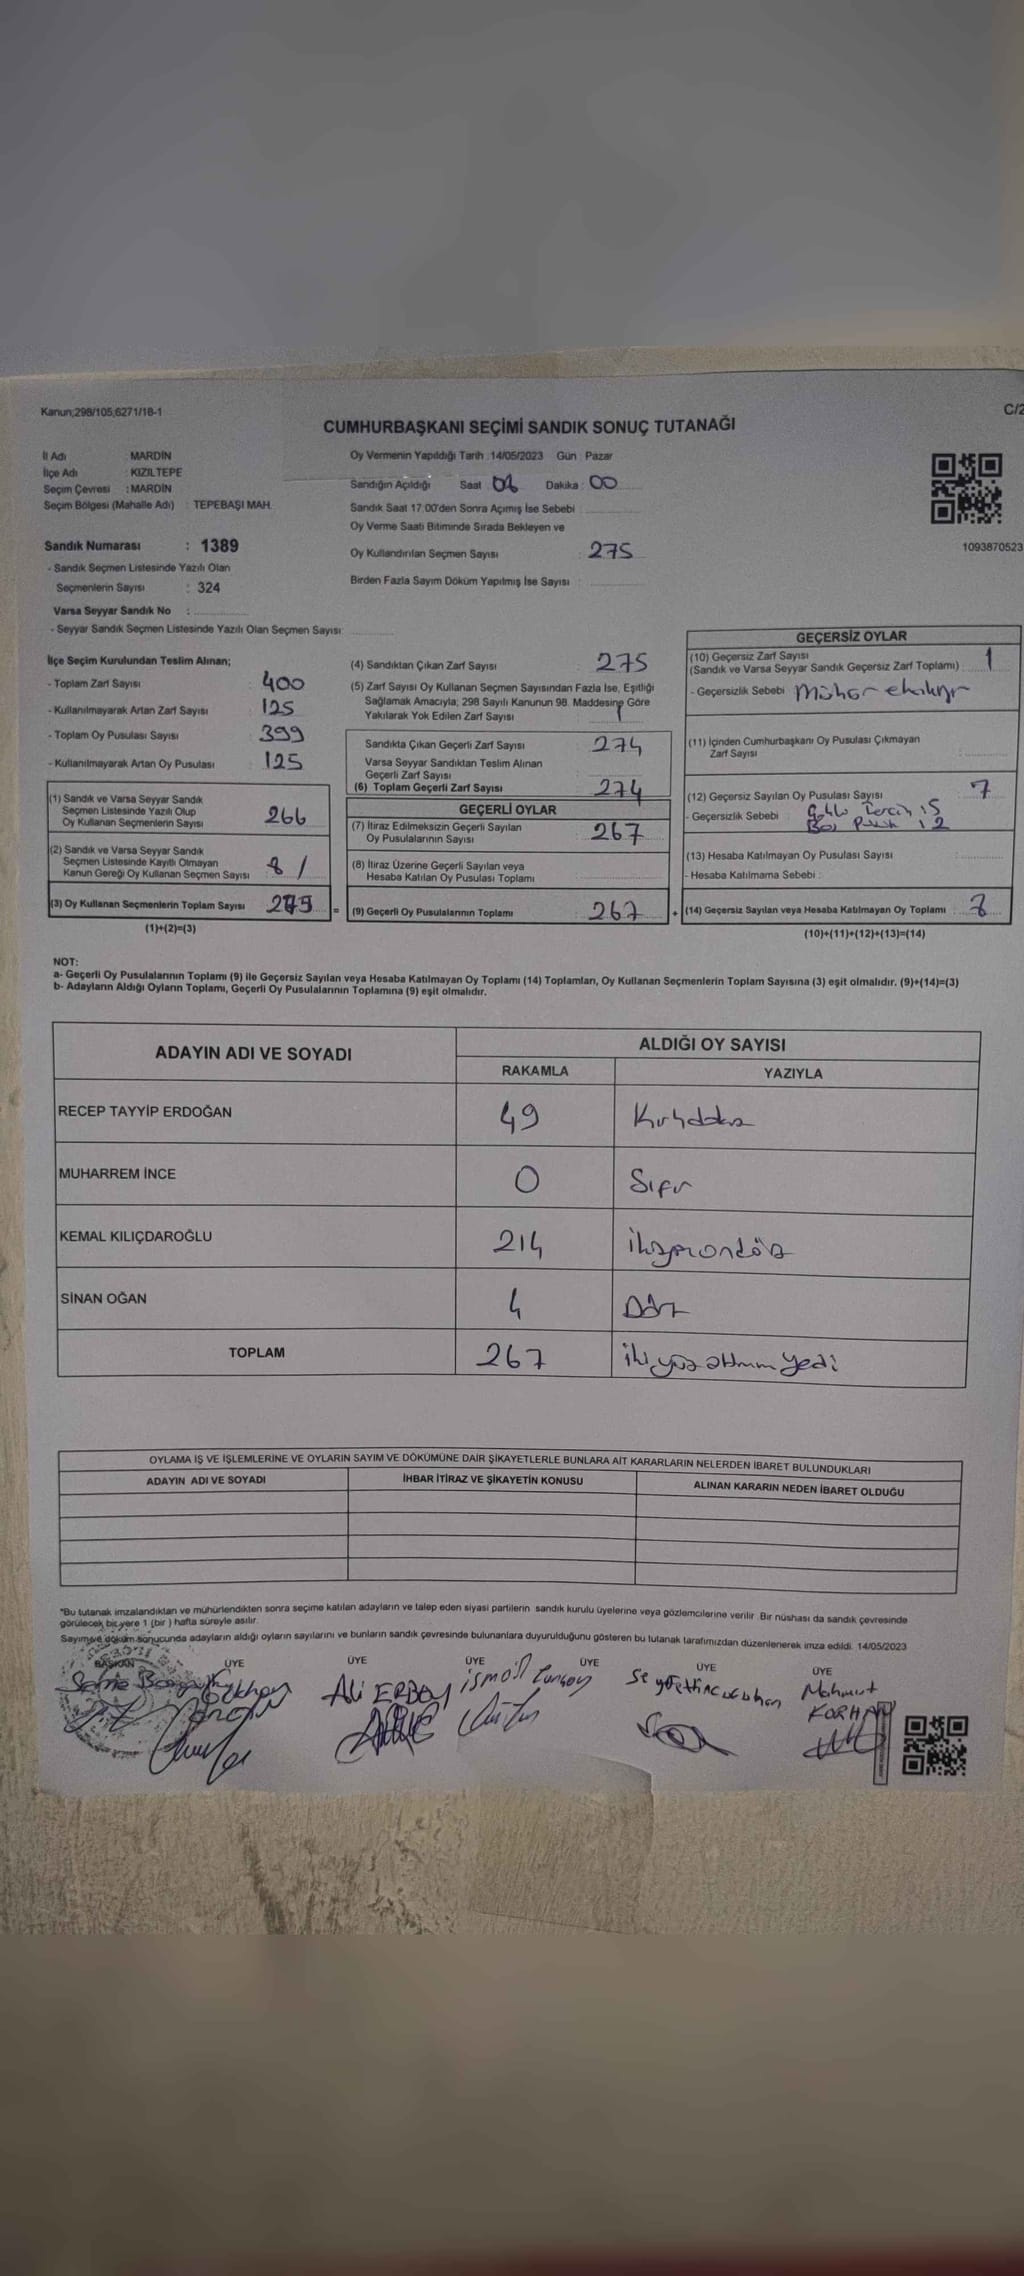 Kanun;298/105,6271/18-1
C/2
CUMHURBAŞKANI SEÇİMİ SANDIK SONUÇ TUTANAĞI
İl Adı : MARDİN
İlçe Adı : KIZILTEPE
Seçim Çevresi : MARDİN
Seçim Bölgesi (Mahalle Adı) : TEPEBAŞI MAH.
Sandık Numarası : 1389
- Sandık Seçmen Listesinde Yazılı Olan
Seçmenlerin Sayısı : 324
Varsa Seyyar Sandık No :
- Seyyar Sandık Seçmen Listesinde Yazılı Olan Seçmen Sayısı:
Oy Vermenin Yapıldığı Tarih :14/05/2023 Gün : Pazar
Sandığın Açıldığı Saat : 08 Dakika : 00
Sandık Saat 17:00'den Sonra Açımış İse Sebebi :
Oy Verme Saati Bitiminde Sırada Bekleyen ve
Oy Kullandırılan Seçmen Sayısı : 275
Birden Fazla Sayım Döküm Yapılmış İse Sayısı :
1093870523
İlçe Seçim Kurulundan Teslim Alınan;
- Toplam Zarf Sayısı : 400
- Kullanılmayarak Artan Zarf Sayısı : 125
- Toplam Oy Pusulası Sayısı : 399
- Kullanılmayarak Artan Oy Pusulası : 125
(1) Sandık ve Varsa Seyyar Sandık
Seçmen Listesinde Yazılı Olup
Oy Kullanan Seçmenlerin Sayısı : 266
(2) Sandık ve Varsa Seyyar Sandık
Seçmen Listesinde Kayıtlı Olmayan
Kanun Gereği Oy Kullanan Seçmen Sayısı : 8 /
(3) Oy Kullanan Seçmenlerin Toplam Sayısı :
(1)+(2)=(3)
(4) Sandıktan Çıkan Zarf Sayısı : 275
(5) Zarf Sayısı Oy Kullanan Seçmen Sayısından Fazla İse, Eşitliği
Sağlamak Amacıyla; 298 Sayılı Kanunun 98. Maddesine Göre
Yakılarak Yok Edilen Zarf Sayısı : 1
Sandıkta Çıkan Geçerli Zarf Sayısı : 274
Varsa Seyyar Sandıktan Teslim Alınan
Geçerli Zarf Sayısı
(6) Toplam Geçerli Zarf Sayısı : 274
GEÇERLİ OYLAR
(7) İtiraz Edilmeksizin Geçerli Sayılan
Oy Pusulalarının Sayısı : 267
(8) İtiraz Üzerine Geçerli Sayılan veya
Hesaba Katılan Oy Pusulası Toplamı :
= (9) Geçerli Oy Pusulalarının Toplamı : 267 +
GEÇERSİZ OYLAR
(10) Geçersiz Zarf Sayısı
(Sandık ve Varsa Seyyar Sandık Geçersiz Zarf Toplamı) : 1
- Geçersizlik Sebebi : Mühür
(11) İçinden Cumhurbaşkanı Oy Pusulası Çıkmayan
Zarf Sayısı :
(12) Geçersiz Sayılan Oy Pusulası Sayısı : 7
- Geçersizlik Sebebi : Tercih : 5
Boş : 2
(13) Hesaba Katılmayan Oy Pusulası Sayısı :
- Hesaba Katılmama Sebebi :
(14) Geçersiz Sayılan veya Hesaba Katılmayan Oy Toplamı :
(10)+(11)+(12)+(13)=(14)
NOT:
a- Geçerli Oy Pusulalarının Toplamı (9) ile Geçersiz Sayılan veya Hesaba Katılmayan Oy Toplamı (14) Toplamları, Oy Kullanan Seçmenlerin Toplam Sayısına (3) eşit olmalıdır. (9)+(14)=(3)
b- Adayların Aldığı Oyların Toplamı, Geçerli Oy Pusulalarının Toplamına (9) eşit olmalıdır.
ADAYIN ADI VE SOYADI
ALDIĞI OY SAYISI
RAKAMLA YAZIYLA
RECEP TAYYİP ERDOĞAN 49 Kırkdokuz
MUHARREM İNCE 0 Sıfır
KEMAL KILIÇDAROĞLU 214 ikiyüzondört
SİNAN OĞAN 4 Dört
TOPLAM 267 ikiyüz altmış yedi
OYLAMA İŞ VE İŞLEMLERİNE VE OYLARIN SAYIM VE DÖKÜMÜNE DAİR ŞİKAYETLERLE BUNLARA AİT KARARLARIN NELERDEN İBARET BULUNDUKLARI
ADAYIN ADI VE SOYADI İHBAR İTİRAZ VE ŞİKAYETİN KONUSU ALINAN KARARIN NEDEN İBARET OLDUĞU
*Bu tutanak imzalandıktan ve mühürlendikten sonra seçime katılan adayların ve talep eden siyasi partilerin sandık kurulu üyelerine veya gözlemcilerine verilir. Bir nüshası da sandık çevresinde
görülecek bir yere 1 (bir ) hafta süreyle asılır.
Sayım ve döküm sonucunda adayların aldığı oyların sayılarını ve bunların sandık çevresinde bulunanlara duyurulduğunu gösteren bu tutanak tarafımızdan düzenlenerek imza edildi. 14/05/2023
BAŞKAN ÜYE ÜYE ÜYE ÜYE ÜYE ÜYE
Gökhan Ali ERBEY İsmail Mahmut
KORHAN